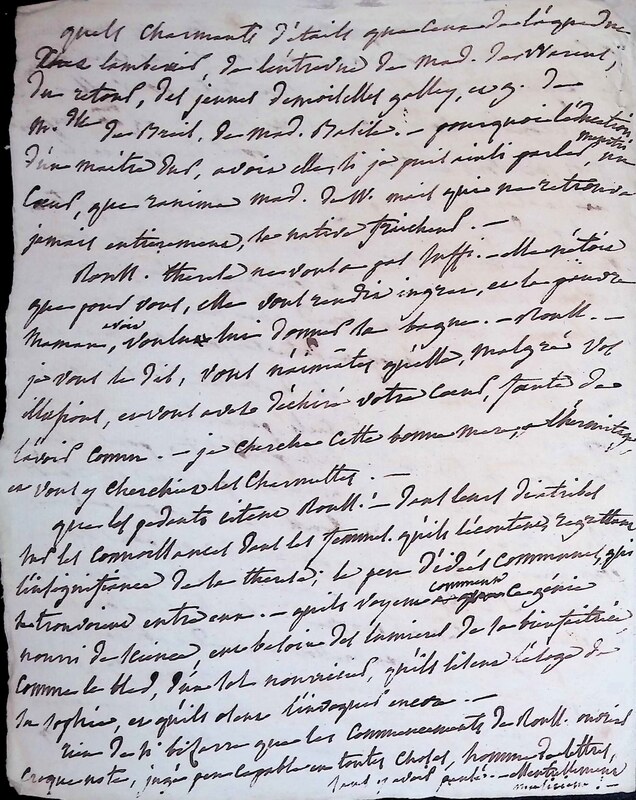 quels charmants détails que ceux de l'aqueduc
des lambercier, de l'entrevue de mad. de Warens,
du retour, des jeunes demoiselles galley, et g. de
M.dlle de Breil, de mad. Basile. — pourquoi l'éducation
d'un maitre dur, avoir elle si je puis ainsi parler, un
Cœur, que ranima mad. de W. mais qui ne retrouva
jamais entierement, sa native fraicheur. —
Rouss. therese ne vous a pas suffi. — elle n'étoit
que pour vous, elle vous rendit ingrat, et la pauvre
Maman, voulut lui donner sa bague. — Rouss. —
je vous le dis, vous n'aimâtes qu'elle, malgré vos
illusions, et vous avez déchiré votre Cœur, faute de
l'avoir connu. — je cherche cette bonne mere, à l'hermitage,
et vous y cherchiez les Charmettes. —
que les pedants citent Rouss. — dans leurs diatribes
sur les connoissances dans les femmes. qu'ils l'écoutent, regrettant
l'insignifiance de sa therese; le peu d'idées communes, qui
se trouvoient entre eux. — qu'ils voyent comment ce génie
nourri de science, eut besoin des lumieres de sa bienfaitrice,
comme le bled, d'un sol nourricier, qu'ils lisent l'éloge de
sa sophie, et qu'ils osent l'invoquer encor. —
rien de si bisarre que les Commencements de Rouss.
Croque note, jugé peu capable en toutes choses, homme de lettres,
sans y avoir pensé. —